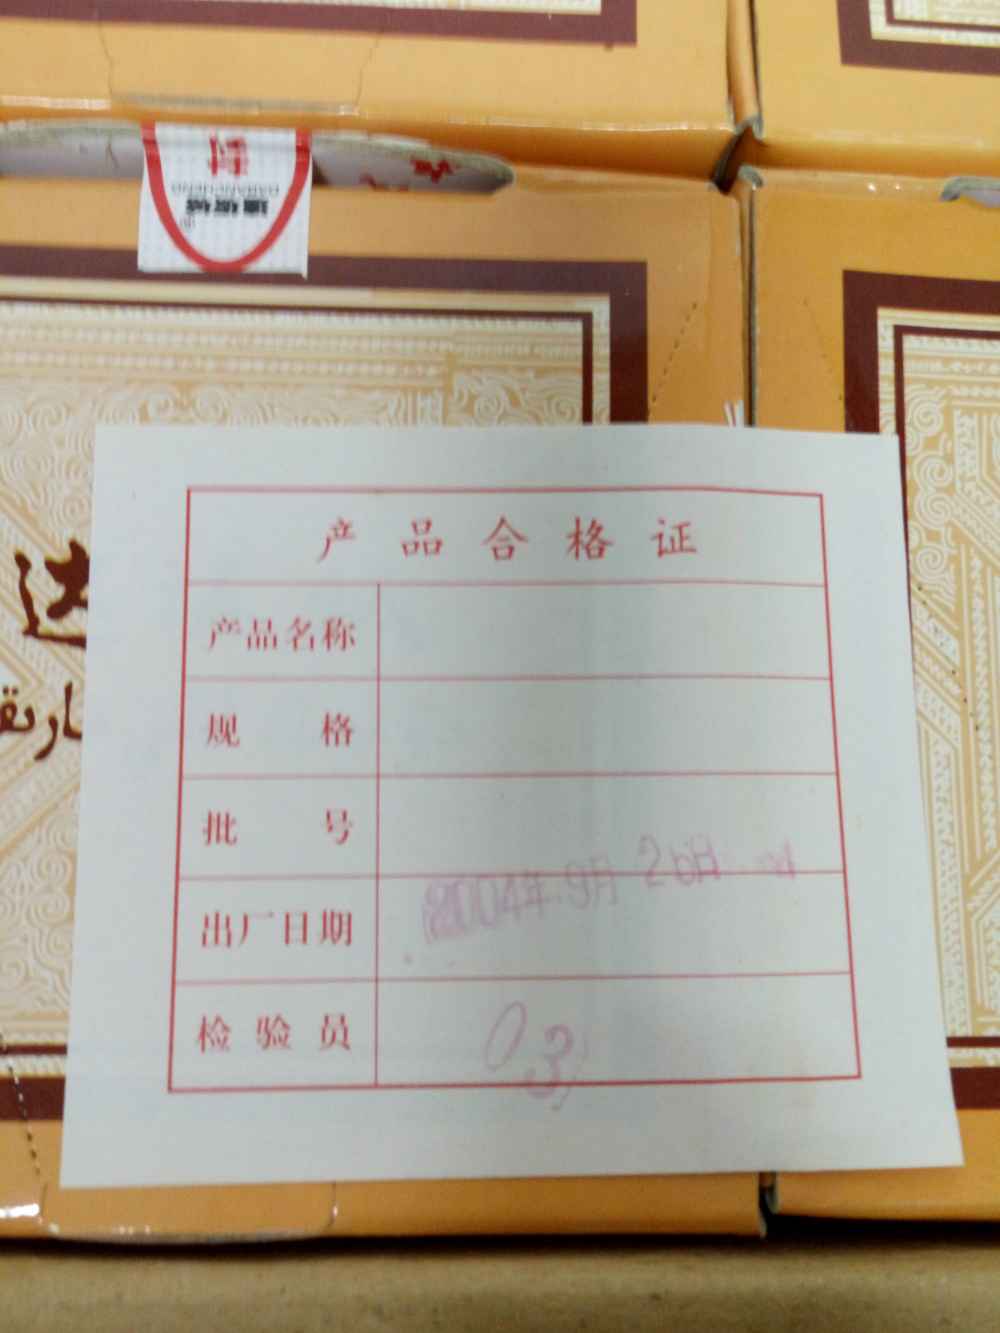 DABANCHENG
达坂城
达
产品合格证
产品名称
规格
批号
出厂日期 2004年9月26日
检验员 03